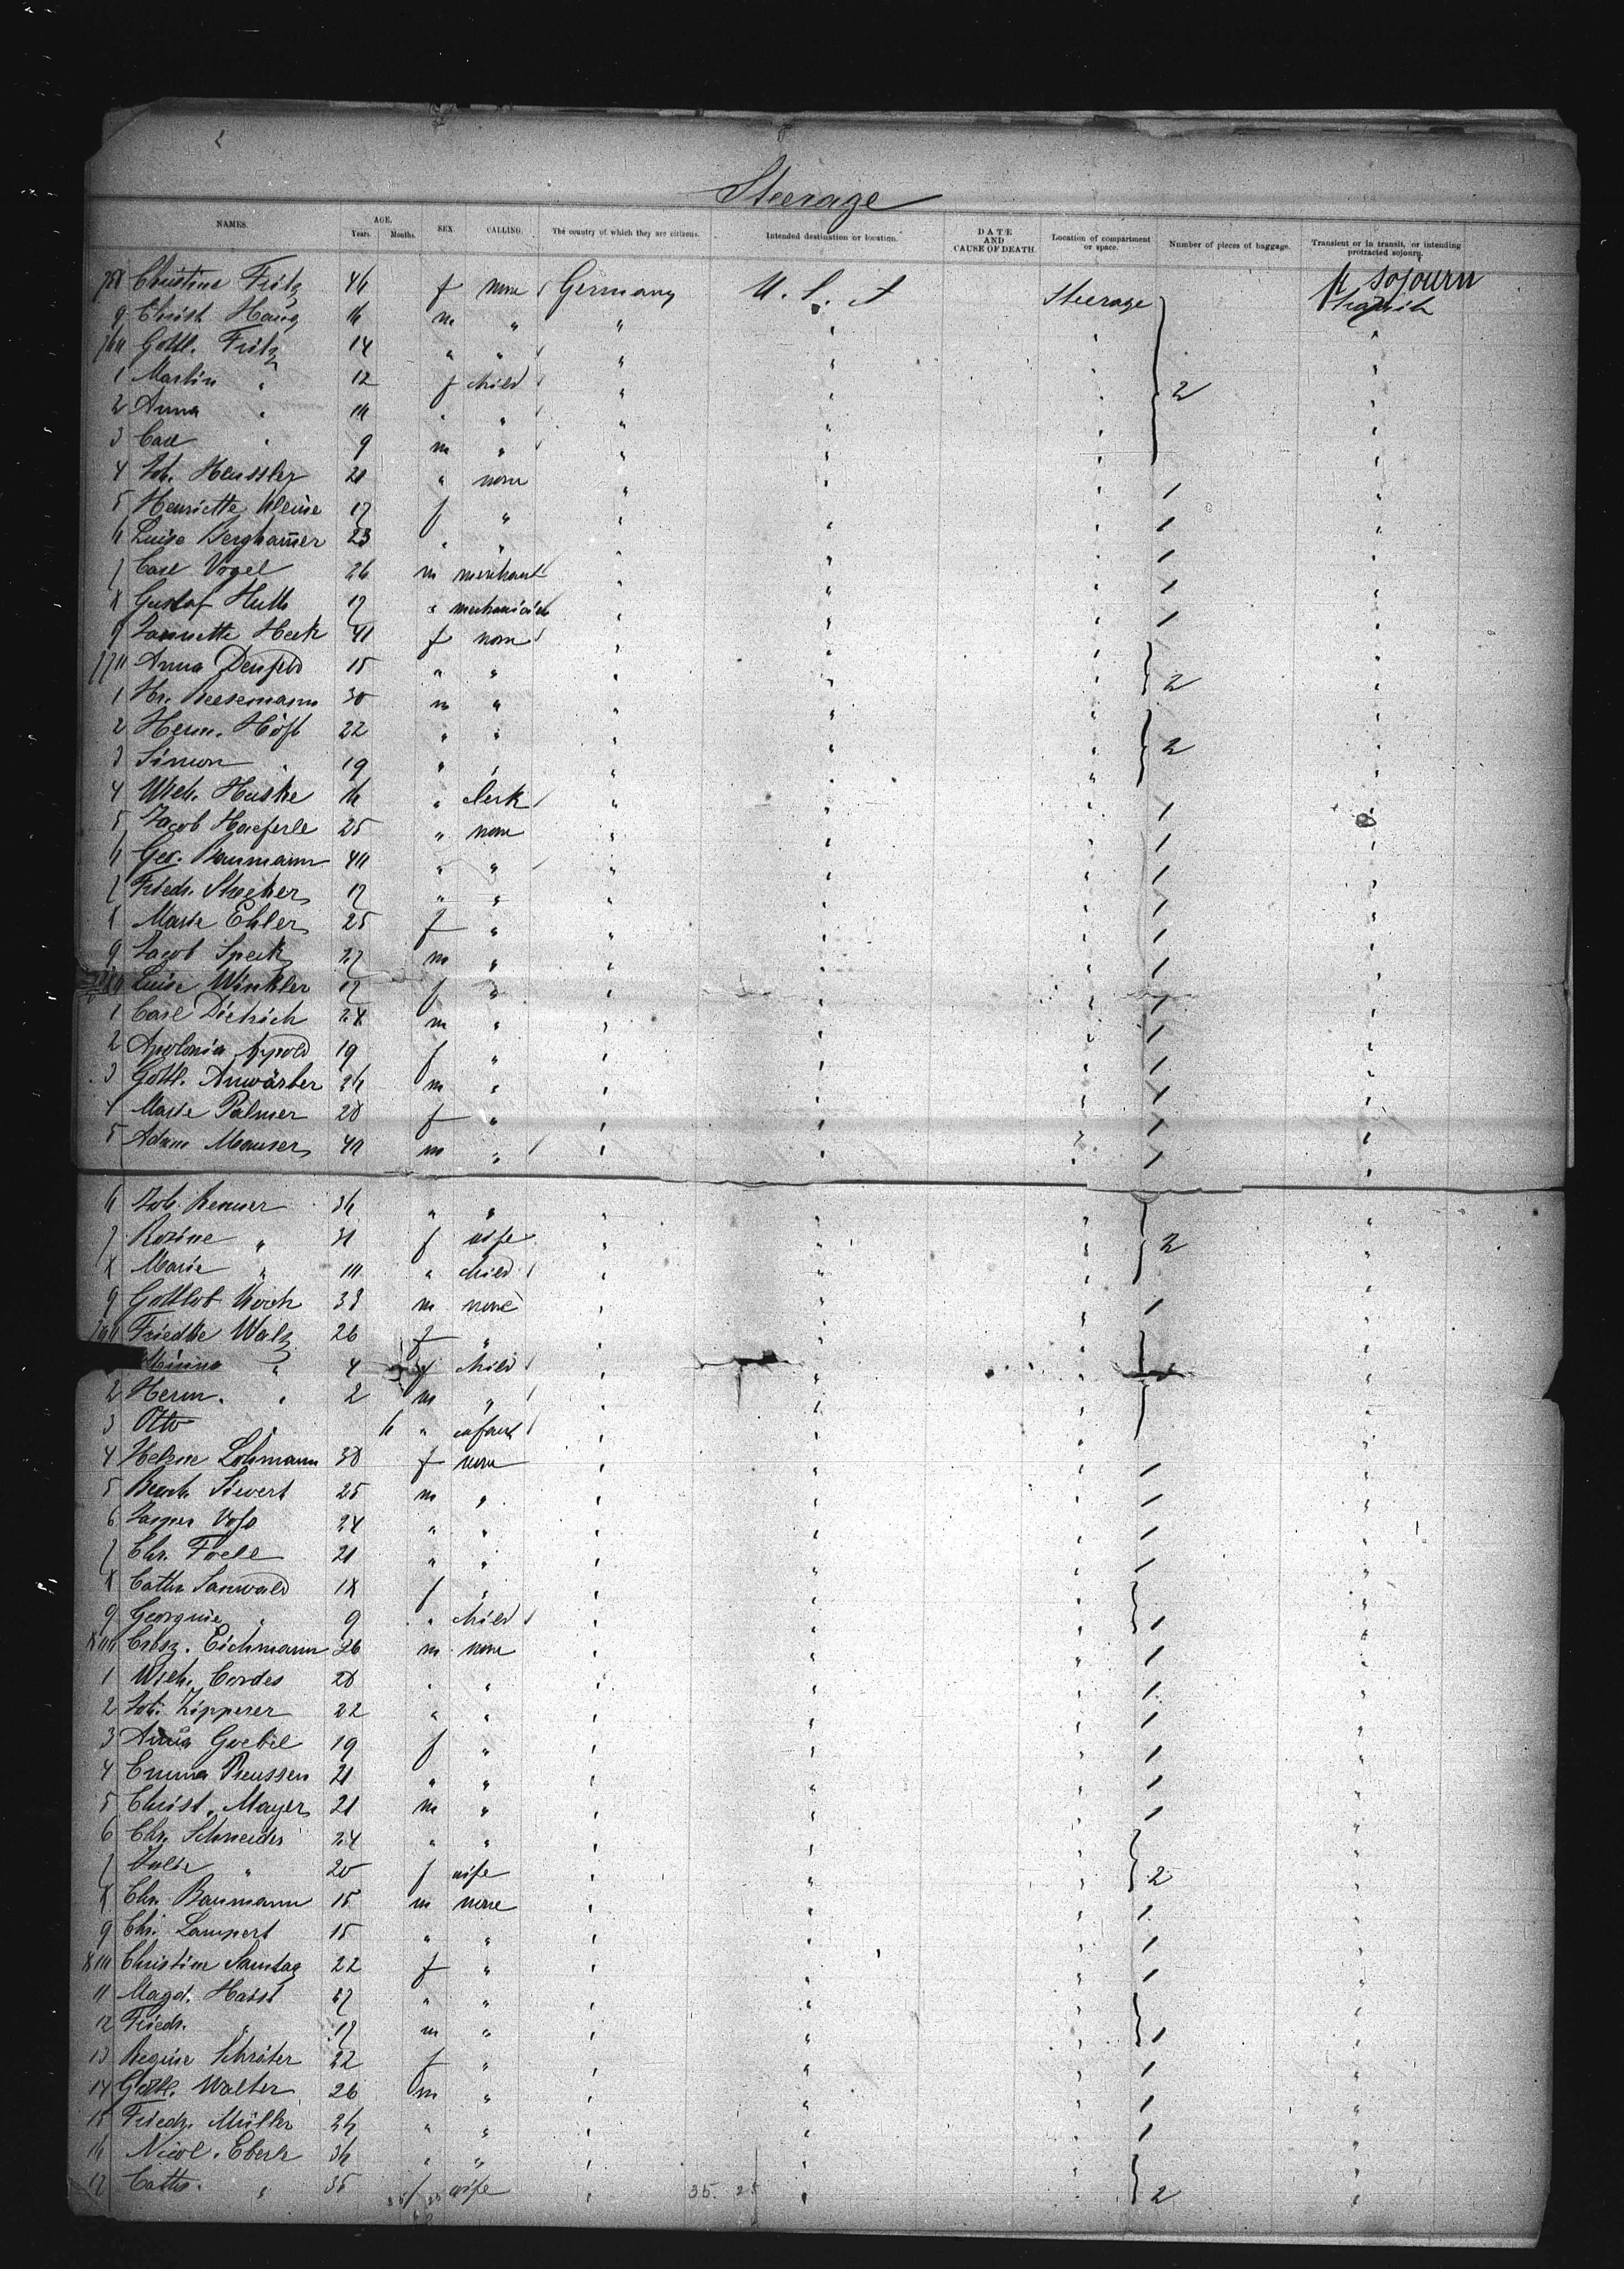 Steerage
NAMES. AGE. Years. Months. SEX CALLING. The country of which they are citizens. Intended destination or location. DATE AND CAUSE OF DEATH. Location of compartment or space. Number of pieces of baggage. Transient or in transit, or intending protracted sojourn.
Christine Fritz 46 f none Germany U. S. A Steerage sojourn
9 Christ Haug 16 m " " transit
Gottl. Fritz 14 " " "
1 Martin " 12 f child " 2
2 Anna " " " "
3 Carl " 9 m " "
4 Joh. Haussler 21 " none " 1
5 Henriette Kleine 17 f " " 1
6 Luise Bergham̄er 23 " " " 1
7 Carl Vogel 26 m merchant " 1
8 Gustaf Huth 17 " " 1
9 Jannette Heck 41 f none "
Anna Denfeld 15 " " " 2
1 Hr. Reesemann 30 m " "
2 Herm. Höfl 22 " " " 2
3 Simon " 19 " " "
4 Wilh. Huske 16 " clerk " 1
5 Jacob Haeferle 25 " none " 1
6 Geo. Baumann 40 " " " 1
7 Friedr. Stecher 17 " " " 1
8 Marie Ehler 25 f " " 1
9 Jacob Speck 27 m " " 1
Luise Winkler 17 f " " 1
1 Carl Dietrich 28 m " " 1
2 Apolonia 19 f " " 1
3 Gottl. Anwärter 26 m " " 1
4 Marie Palmer 28 f " " 1
5 Adam Mauser 40 m " " 1
6 Joh. Renner 36 " " "
7 Rosine " 31 f wife " 2
8 Marie " 10 " child "
9 Gottlob Koch 33 m none " 1
Friedke Walz 26 f " "
Minna " 4 f child "
2 Herm. " 2 m " "
3 Otto " 6 " infant "
4 Helene Lohmann 38 f none " 1
5 Sievert 25 m " " 1
6 Voss 24 " " " 1
7 Chr. Foell 21 " " " 1
8 Cathr Sanwald 18 f " "
9 Georgine " 9 " child " 1
Eichmann 26 m none " 1
1 Wilh. Cordes 28 " " " 1
2 Joh. Zipperer 22 " " " 1
3 Anna Goebel 19 f " " 1
4 Emma Preussen 21 " " " 1
5 Christ. Mayer 21 m " " 1
6 Chr. Schneider 24 " " "
7 Julie " 20 f wife " 2
8 Chr. Baumann 15 m none " 1
9 Chr. Lampert 15 " " " 1
Christine Samtag 22 f " " 1
11 Magd. Haist " " "
12 Friedr. " 17 m " " 1
13 Regine Schröter 22 f " " 1
14 Gottl. Walter 26 m " " 1
15 Friedr. Müller 26 " " " 1
16 Nicol. Eberle 36 " " "
17 Cathr. " 35 f wife " 2
35. 25